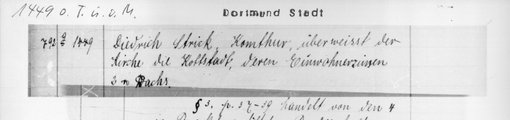 1449 o. T. u. o. M.
Dortmund Stadt
792 1449 Diedrich Strick, Komthur, überweisst der
Kirche del Hollstadt, deren Einwohnerzinsen
3 n Wachs.
§ 3. p. 37-39 handelt von den 4